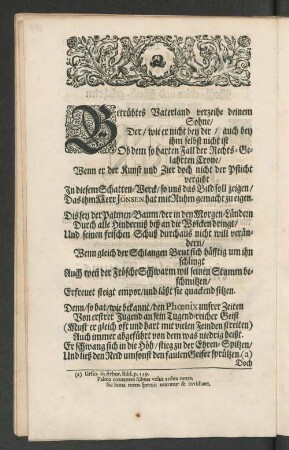 Betrübtes Vaterland verzeihe deinem
Sohne/
Der / wie er nicht bey dir / auch bey
ihm selbst nicht ist
Ob dem so harten Fall der Rechts-Ge-
lahrten Crone/
Wenn er der Kunst und Zier doch nicht der Pflicht
vergißt
In diesem Schatten-Werck / so uns das Bild soll zeigen/
Das ihm Herr JÖNSEN hat mit Ruhm gemacht zu eigen.
Das sey der Palmen-Baum / der in den Morgen-Ländern
Durch alle Hindernis biß an die Wolcken dringt/
Und seinen frischen Schuß durchauß nicht will verän-
dern/
Wenn gleich der Schlangen Brut sich häfftig um ihn
schlingt
Auch weñ der Frösche Schwarm wil seinen Stamm be-
schmitzen/
Erfreuet steigt empor / und läßt sie quackend sitzen.
Denn / so hat / wie bekannt / den Phœnix unsrer Zeiten
Von erstrer Jugend an sein Tugend-reicher Geist
(Must er gleich oft und hart mit vielen Feinden streiten)
Auch immer abgeführt von dem was niedrig heißt.
Er schwang sich in die Höh / stieg zu der Ehren-Spitzen/
Und ließ den Neid umsonst den faulen Geifer sprützen. (a)
Doch
(a) in Arbor. p. 139.
Palma conantes
Sic bona mens spernit & invidiam.